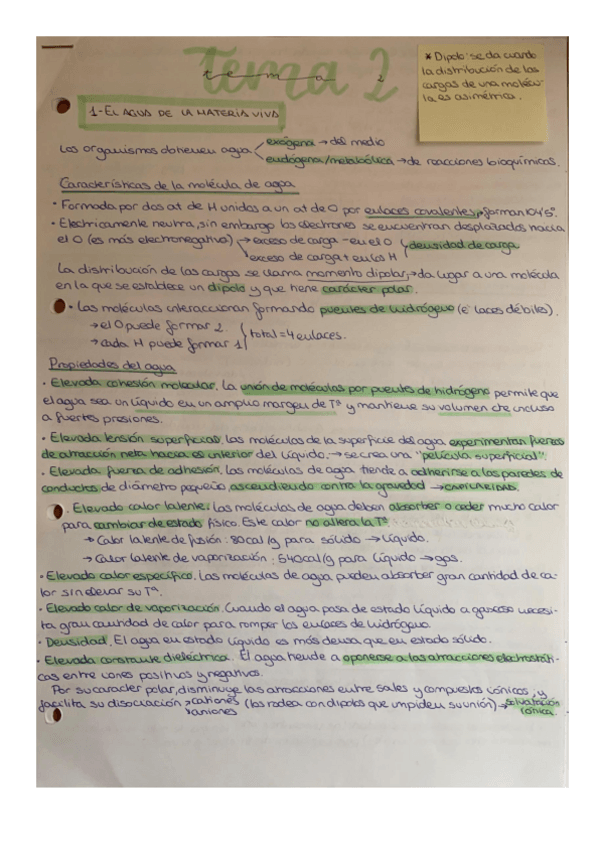 Tema 2
tema 2
* Dipolo: se da cuando
la distribución de las
cargas de una molécu-
la es asimétrica.
1-EL AGUA DE LA MATERIA VIVA
Los organismos obtienen agua
exógena → del medio
endógena/metabólica → de reacciones bioquímicas.
Características de la molécula de agua
· Formada por dos at de H unidos a un at de O por enlaces covalentes, forman 104'5º.
· Electricamente neutra, sin embargo los electrones se encuentran desplazados hacia
el O (es más electronegativo) → exceso de carga - en el O densidad de carga
exceso de carga + en los H
La distribución de las cargas se llama momento dipolar, → da lugar a una molécula
en la que se establece un dipolo y que tiene carácter polar.
· Las moléculas interaccionan formando puentes de hidrógeno (e laces débiles).
→ el O puede formar 2.
→ cada H puede formar 1
total = 4 enlaces.
Propiedades del agua
· Elevada cohesión molecular. La unión de moléculas por puentes de hidrógeno permite que
el agua sea un líquido en un amplio margen de Tª y mantiene su volumen cte incluso
a fuertes presiones.
· Elevada tensión superficial. Las moléculas de la superficie del agua experimentan fuerzas
de atracción neta hacia el interior del líquido. → se crea una "película superficial".
· Elevada fuerza de adhesión. Las moléculas de agua tiende a adherirse a las paredes de
conductos de diámetro pequeño, ascendiendo contra la gravedad → CAPILARIDAD.
· Elevado calor latente. Las moléculas de agua deben absorber o ceder mucho calor
para cambiar de estado físico. Este calor no altera la Tª
→ Calor latente de fusión: 80cal/g para sólido → líquido.
→ Calor latente de vaporización: 540cal/g para líquido → gas.
· Elevado calor específico. Las moléculas de agua pueden absorber gran cantidad de ca-
lor sin elevar su Tª.
· Elevado calor de vaporización. Cuando el agua pasa de estado líquido a gaseoso necesi-
ta gran cantidad de calor para romper los enlaces de hidrógeno.
· Densidad. El agua en estado líquido es más densa que en estado sólido.
· Elevada constante dieléctrica. El agua tiende a oponerse a las atracciones electrostáti-
cas entre iones positivos y negativos.
Por su caracter polar, disminuye las atracciones entre sales y compuestos iónicos, y
facilita su disociación cationes (los rodea con dipolos que impiden su unión) → solvatación
aniones
iónica.